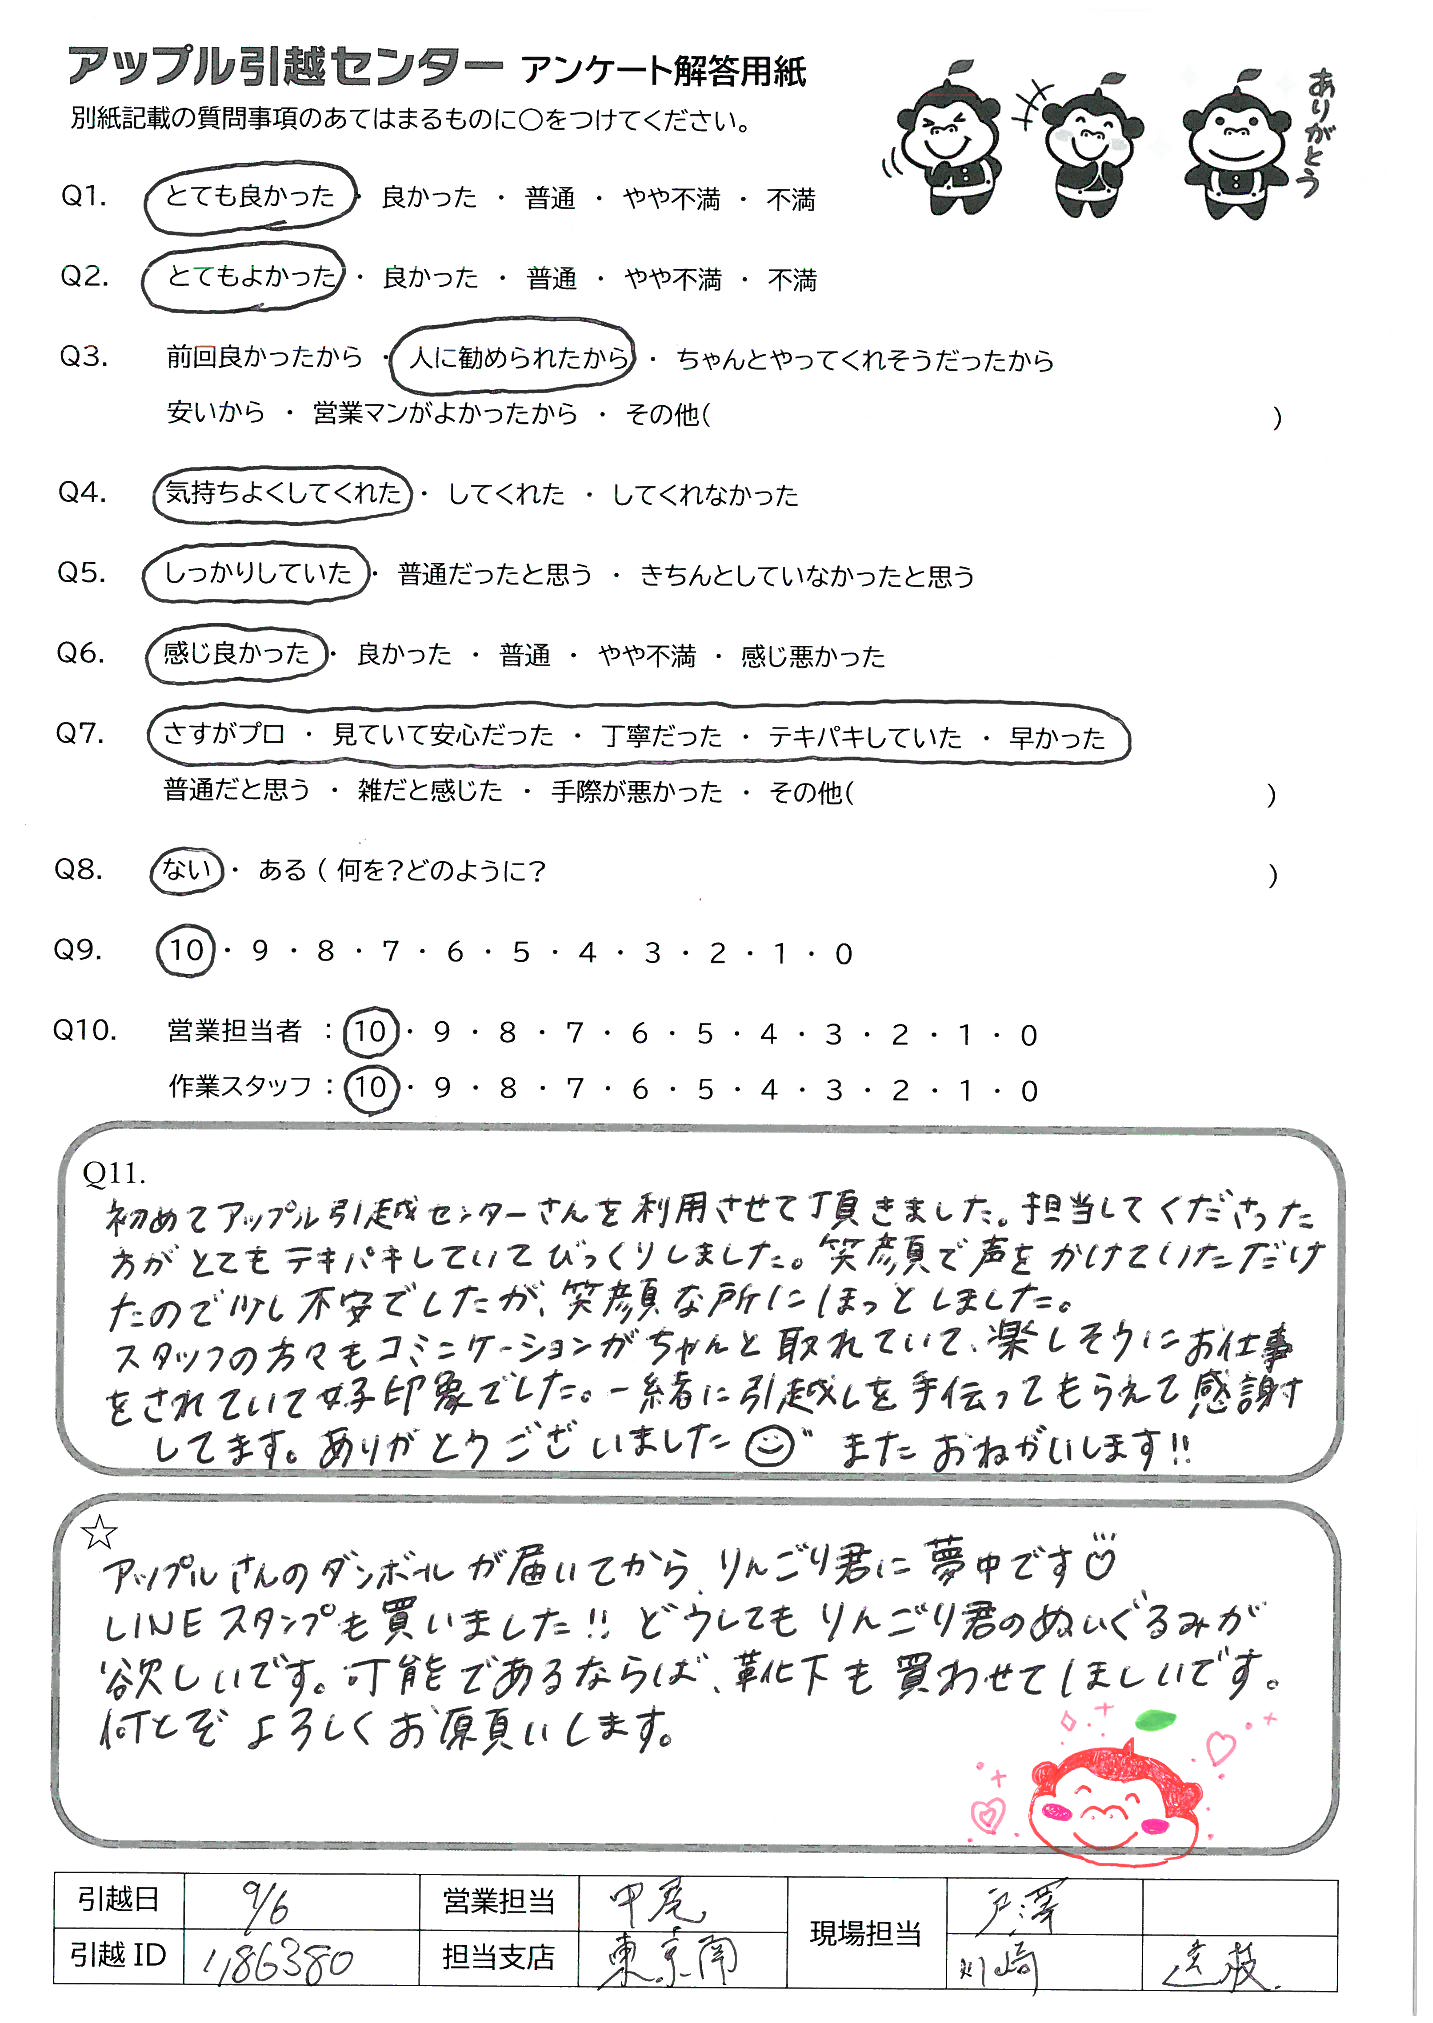 アップル引越センター アンケート解答用紙
ありがとう
別紙記載の質問事項のあてはまるものに○をつけてください。
Q1. とても良かった ・ 良かった ・ 普通 ・ やや不満 ・ 不満
Q2. とてもよかった ・ 良かった ・ 普通 ・ やや不満 ・ 不満
Q3. 前回良かったから ・ 人に勧められたから ・ ちゃんとやってくれそうだったから
安いから ・ 営業マンがよかったから ・ その他( )
Q4. 気持ちよくしてくれた ・ してくれた ・ してくれなかった
Q5. しっかりしていた ・ 普通だったと思う ・ きちんとしていなかったと思う
Q6. 感じ良かった ・ 良かった ・ 普通 ・ やや不満 ・ 感じ悪かった
Q7. さすがプロ ・ 見ていて安心だった ・ 丁寧だった ・ テキパキしていた ・ 早かった
普通だと思う ・ 雑だと感じた ・ 手際が悪かった ・ その他( )
Q8. ない ・ ある ( 何を?どのように? )
Q9. 10 ・ 9 ・ 8 ・ 7 ・ 6 ・ 5 ・ 4 ・ 3 ・ 2 ・ 1 ・ 0
Q10. 営業担当者 : 10 ・ 9 ・ 8 ・ 7 ・ 6 ・ 5 ・ 4 ・ 3 ・ 2 ・ 1 ・ 0
作業スタッフ : 10 ・ 9 ・ 8 ・ 7 ・ 6 ・ 5 ・ 4 ・ 3 ・ 2 ・ 1 ・ 0
Q11.
初めてアップル引越センターさんを利用させて頂きました。担当してくださった
方がとてもテキパキしていてびっくりしました。笑顔で声をかけていただけ
たので少し不安でしたが、笑顔な所にほっとしました。
スタッフの方々もコミニケーションがちゃんと取れていて、楽しそうにお仕事
をされていて好印象でした。一緒に引越しを手伝ってもらえて感謝
してます。ありがとうございました またおねがいします!!
☆
アップルさんのダンボールが届いてから、りんごり君に夢中です
LINEスタンプも買いました!! どうしてもりんごり君のぬいぐるみが
欲しいです。可能であるならば、靴下も買わせてほしいです。
何とぞよろしくお願いします。
引越日 9/6 営業担当 中尾 現場担当 戸澤
引越ID 1186380 担当支店 東京南 川崎